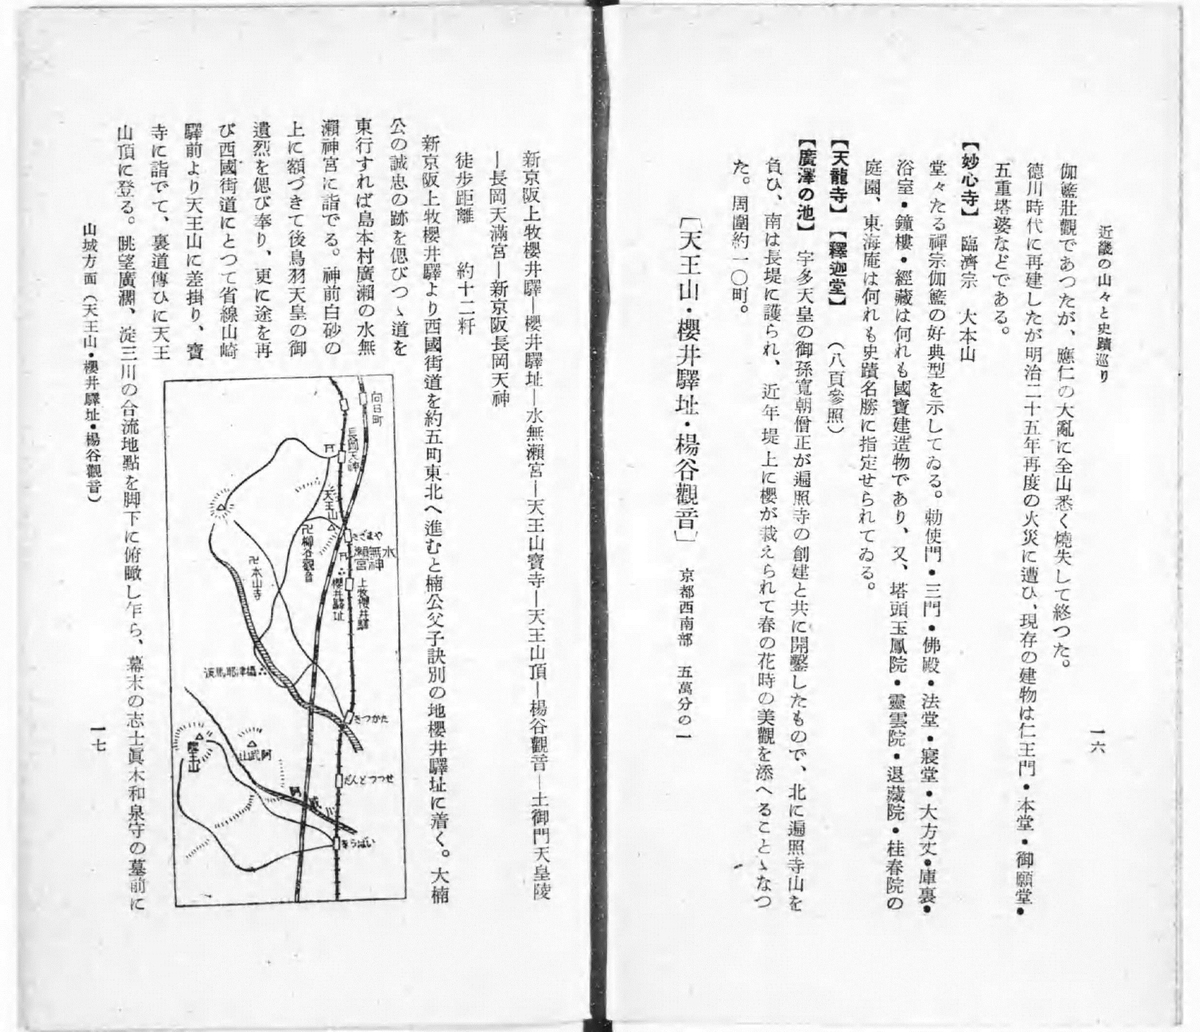 近畿の山々と史蹟巡り
一六
伽籃壯觀であつたが、應仁の大亂に全山悉く燒失して終つた。
德川時代に再建したが明治二十五年再度の火災に遭ひ、現存の建物は仁王門・本堂・御願堂・
五重塔婆などである。
【妙心寺】　臨濟宗　大本山
堂々たる禪宗伽籃の好典型を示してゐる。勅使門・三門・佛殿・法堂・寢堂・大方丈・庫裏・
浴室・鐘樓・經藏は何れも國寶建造物であり、又、塔頭玉鳳院・靈雲院・退藏院・桂春院の
庭園、東海庵は何れも史蹟名勝に指定せられてゐる。
【天龍寺】【釋迦堂】　（八頁參照）
【廣澤の池】　宇多天皇の御孫寬朝僧正が遍照寺の創建と共に開鑿したもので、北に遍照寺山を
負ひ、南は長堤に護られ、近年堤上に櫻が栽えられて春の花時の美觀を添へることゝなつ
た。周圍約一〇町。
［天王山・櫻井驛址・楊谷觀音］　京都西南部　五萬分の一
新京阪上牧櫻井驛―櫻井驛址―水無瀨宮―天王山寶寺―天王山頂―楊谷觀音―土御門天皇陵
―長岡天滿宮―新京阪長岡天神
徒步距離　約十二粁
新京阪上牧櫻井驛より西國街道を約五町東北へ進むと楠公父子訣別の地櫻井驛址に着く。大楠
公の誠忠の跡を偲びつゝ道を
東行すれば島本村廣瀨の水無
瀨神宮に詣でる。神前白砂の
上に額づきて後鳥羽天皇の御
遺烈を偲び奉り、更に途を再
び西國街道にとつて省線山崎
驛前より天王山に差掛り、寶
寺に詣でて、裏道傳ひに天王
山頂に登る。眺望廣濶、淀三川の合流地點を脚下に俯瞰し乍ら、幕末の志士眞木和泉守の墓前に
向日町
長岡天神
天王山
卍楊谷觀音
やまざき
水無瀨神宮
上牧櫻井驛
櫻井驛址
卍本山寺
たかつき
せつつとんだ
阿武山
いばらき
山城方面（天王山・櫻井驛址・楊谷觀音）
一七